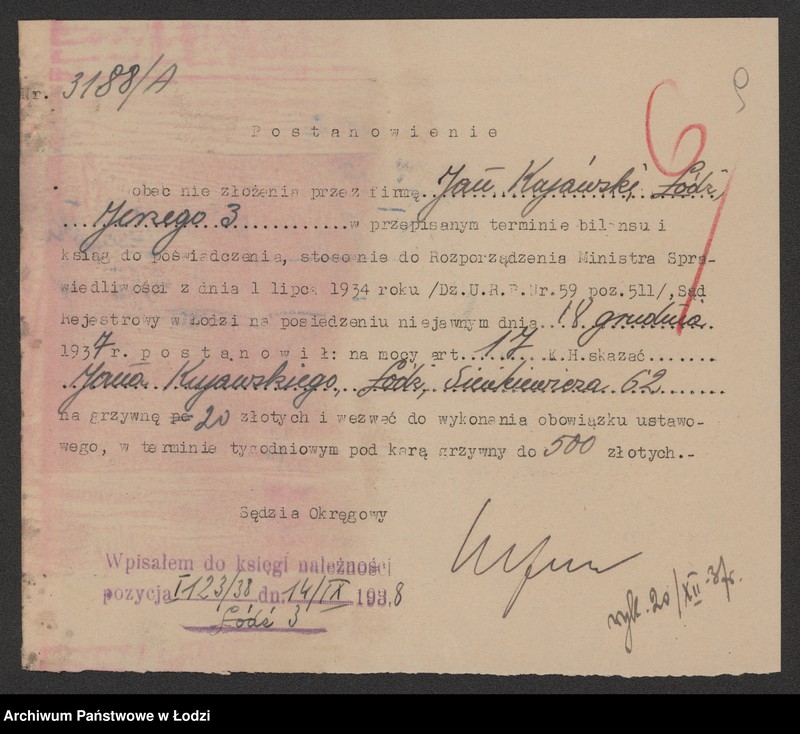 Nr. 3188/A
9
6
Postanowienie
obec nie złożenia przez firmę Jan Kujawski, Łódź,
Jerzego 3 w przepisanym terminie bilansu i
ksiąg do poświadczenia, stosownie do Rozporządzenia Ministra Spra-
wiedliwości z dnia 1 lipca 1934 roku /Dz.U.R.P.Nr.59 poz.511/, Sąd
Rejestrowy w Łodzi na posiedzeniu niejawnym dnia 18 grudnia
1937 r. postanowił: na mocy art. 17 K.H.skazać
Jana Kujawskiego, Łódź, Sienkiewicza 62
na grzywnę 20 złotych i wezwać do wykonania obowiązku ustawo-
wego, w terminie tygodniowym pod karą grzywny do 500 złotych.-
Sędzia Okręgowy
Wpisałem do księgi należności
pozycja I 123/38 dn. 14/IX 1938
Łódź 3
wyk. 20/XII 37r.
Archiwum Państwowe w Łodzi